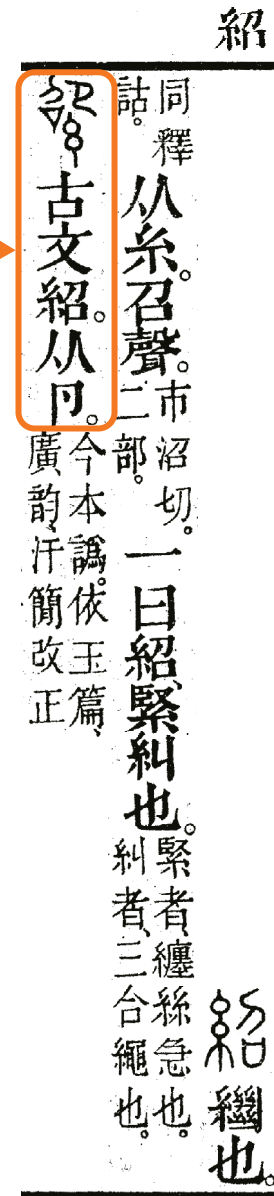 紹
紹繼也。
同釋
詁。
从糸。召聲。
市沼切。
二部。
一曰紹、緊糾也。
緊者、纏絲急也。
糾者、三合繩也。
古文紹。从卪。
今本譌。依玉篇、
廣韵、汗簡改正